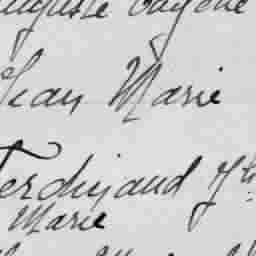 Auguste Eugène
Jean Marie
Ferdinand
Marie